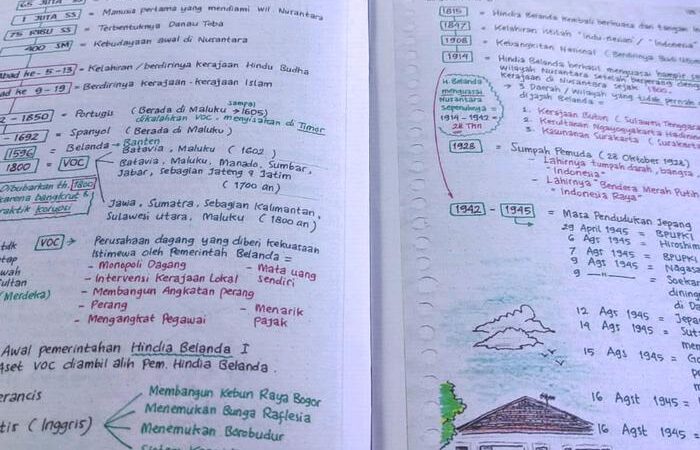 65 JUTA SS
1 JUTA SS = Manusia pertama yang mendiami wil. Nusantara
75 RIBU SS = Terbentuknya Danau Toba
400 SM = Kebudayaan awal di Nusantara
abad ke - 5-13 = Kelahiran / berdirinya kerajaan Hindu Budha
ad ke 9 - 19 = Berdirinya Kerajaan - kerajaan Islam
2 - 1850 = Portugis (Berada di Maluku sampai → 1605)
dikalahkan VOC, menyisahkan di Timor
- 1692 = Spanyol (Berada di Maluku)
1596 = Belanda → Banten
1800 = VOC
Batavia, Maluku (1602)
Batavia, Maluku, Manado, Sumbar,
Jabar, Sebagian Jateng & Jatim
(1700 an)
Dibubarkan th. 1800
karena bangkrut &
praktik korupsi
Jawa, Sumatra, Sebagian Kalimantan,
Sulawesi utara, Maluku (1800 an)
tdk
tap
wah
ultan
(Merdeka)
VOC → Perusahaan dagang yang diberi kekuasaan
Istimewa oleh Pemerintah Belanda =
- Monopoli Dagang
- Intervensi Kerajaan Lokal
- Membangun Angkatan perang
- Perang
- Mengangkat Pegawai
- Mata uang
sendiri
- Menarik
pajak
Awal pemerintahan Hindia Belanda I
Aset VOC diambil alih Pem. Hindia Belanda.
erancis
tis (Inggris)
Membangun Kebun Raya Bogor
Menemukan Bunga Raflesia
Menemukan Borobudur
1815 = Hindia Belanda kembali berkuasa dan tangan In
1847 = Kelahiran istilah "Indu-nesian" / "Indonesia
1908 = Kebangkitan Nasional (Berdirinya Budi
1914 = Hindia Belanda berhasil menguasai hampir
wilayah Nusantara setelah berperang den
Kerajaan di Nusantara sejak 1800.
→ 3 Daerah / wilayah yang tidak pernah
di jajah Belanda =
1. Kerajaan Buton (Sulawesi Tengga
2. Kesultanan Ngayogyakarta Hadinin
3. Kasunanan Surakarta (Surakarta
H. Belanda
menguasai
Nusantara
Sepenuhnya =
1914 - 1942 =
28 Thn
1928 = Sumpah Pemuda (28 Oktober 1928)
- Lahirnya tumpah darah, bangsa,
"Indonesia"
- Lahirnya "Bendera Merah Putih
- "Indonesia Raya"
1942 - 1945 = Masa Pendudukan Jepang
29 April 1945 = BPUPKI
6 Ags 1945 = Hiroshim
7 Ags 1945 = BPUPKI
9 Ags 1945 = Nagasa
9 —"— = Soekar
dining
di Da
12 Ags 1945 = Jepan
14 Ags 1945 = Sut
men
15 Ags 1945 =
16 Agst 1945 =
16 Ags 1945 =